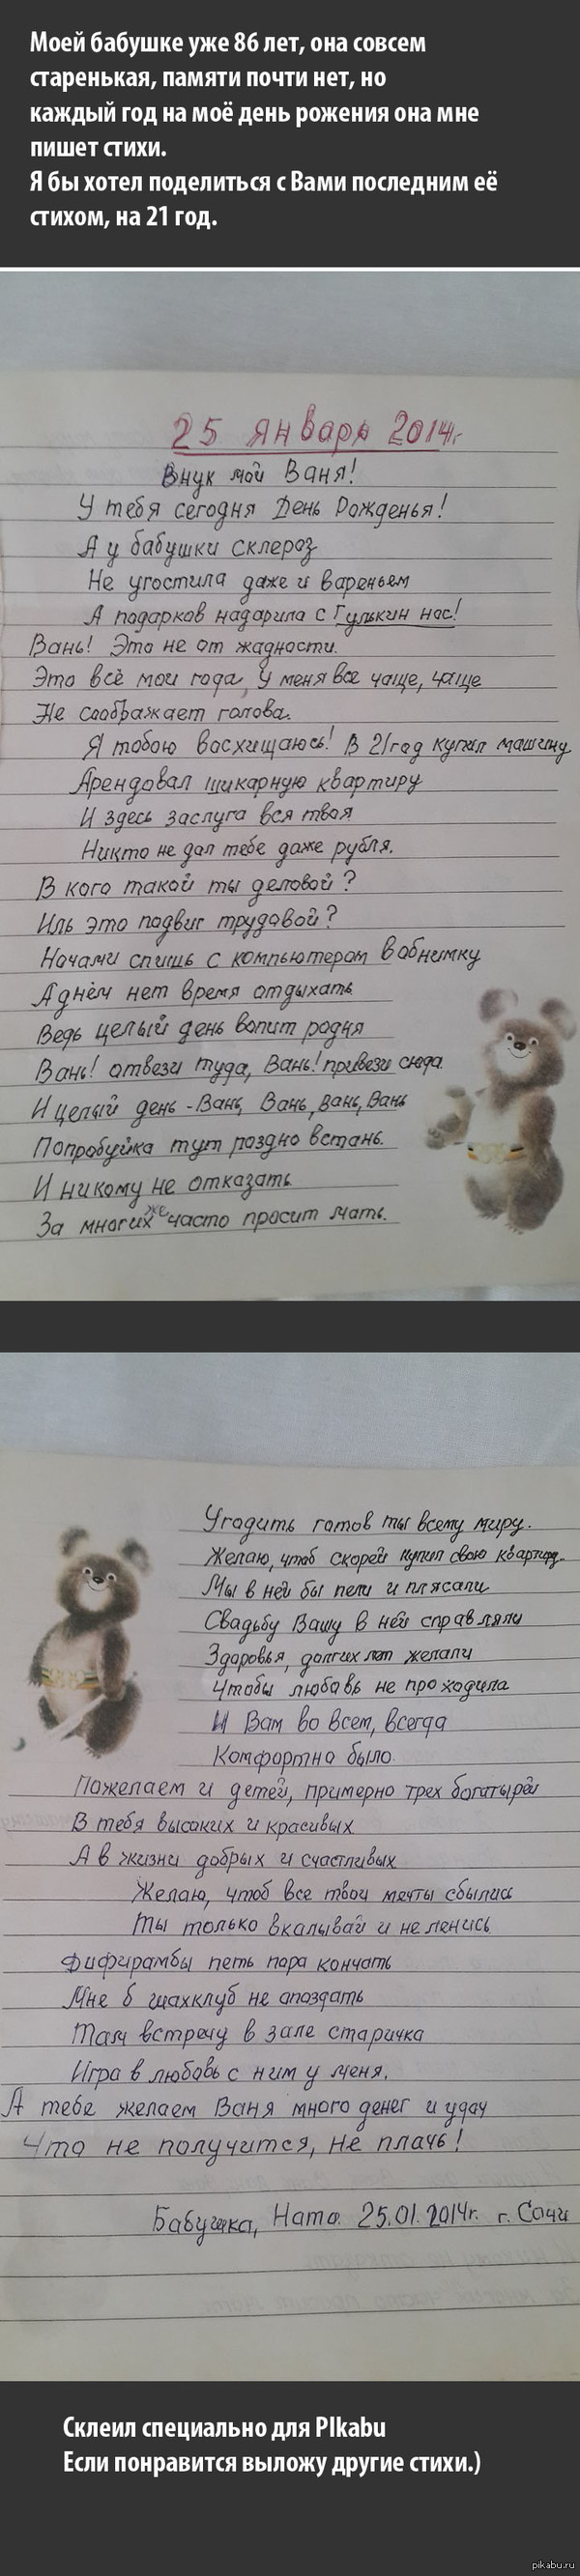 Моей бабушке уже 86 лет, она совсем
старенькая, памяти почти нет, но
каждый год на моё день рожения она мне
пишет стихи.
Я бы хотел поделиться с Вами последним её
стихом, на 21 год.
25 января 2014г.
Внук мой Ваня!
У тебя сегодня День Рожденья!
А у бабушки склероз
Не угостила даже и вареньем
А подарков надарила с Гулькин нос!
Вань! Это не от жадности.
Это всё мои года, У меня все чаще, чаще
Не соображает голова.
Я тобою восхищаюсь! В 21 год купил машину
Арендовал шикарную квартиру
И здесь заслуга вся твоя
Никто не дал тебе даже рубля.
В кого такой ты деловой?
Иль это подвиг трудовой?
Ночами спишь с компьютером в обнимку
А днём нет время отдыхать
Ведь целый день вопит родня
Вань! отвези туда, Вань! привези сюда.
И целый день - Вань, Вань, Вань, Вань
Попробуйка тут поздно встань.
И никому не отказать
За многих же часто просит мать.
Угодить готов ты всему миру.
Желаю, чтоб скорей купил свою квартиру.
Мы в ней бы пели и плясали
Свадьбу Вашу в ней справляли
Здоровья, долгих лет желали
Чтобы любовь не проходила
И Вам во всем, всегда
Комфортно было.
Пожелаем и детей, примерно трех богатырей
В тебя высоких и красивых
А в жизни добрых и счастливых
Желаю, чтоб все твои мечты сбылись
Ты только вкалывай и не ленись.
Дифирамбы петь пора кончать
Мне б шахклуб не опоздать
Там встречу в зале старичка
Игра в любовь с ним у меня.
А тебе желаем Ваня много денег и удач
Что не получится, не плачь!
Бабушка, Ната. 25.01.2014г. г. Сочи
Склеил специально для PIkabu
Если понравится выложу другие стихи.)
pikabu.ru